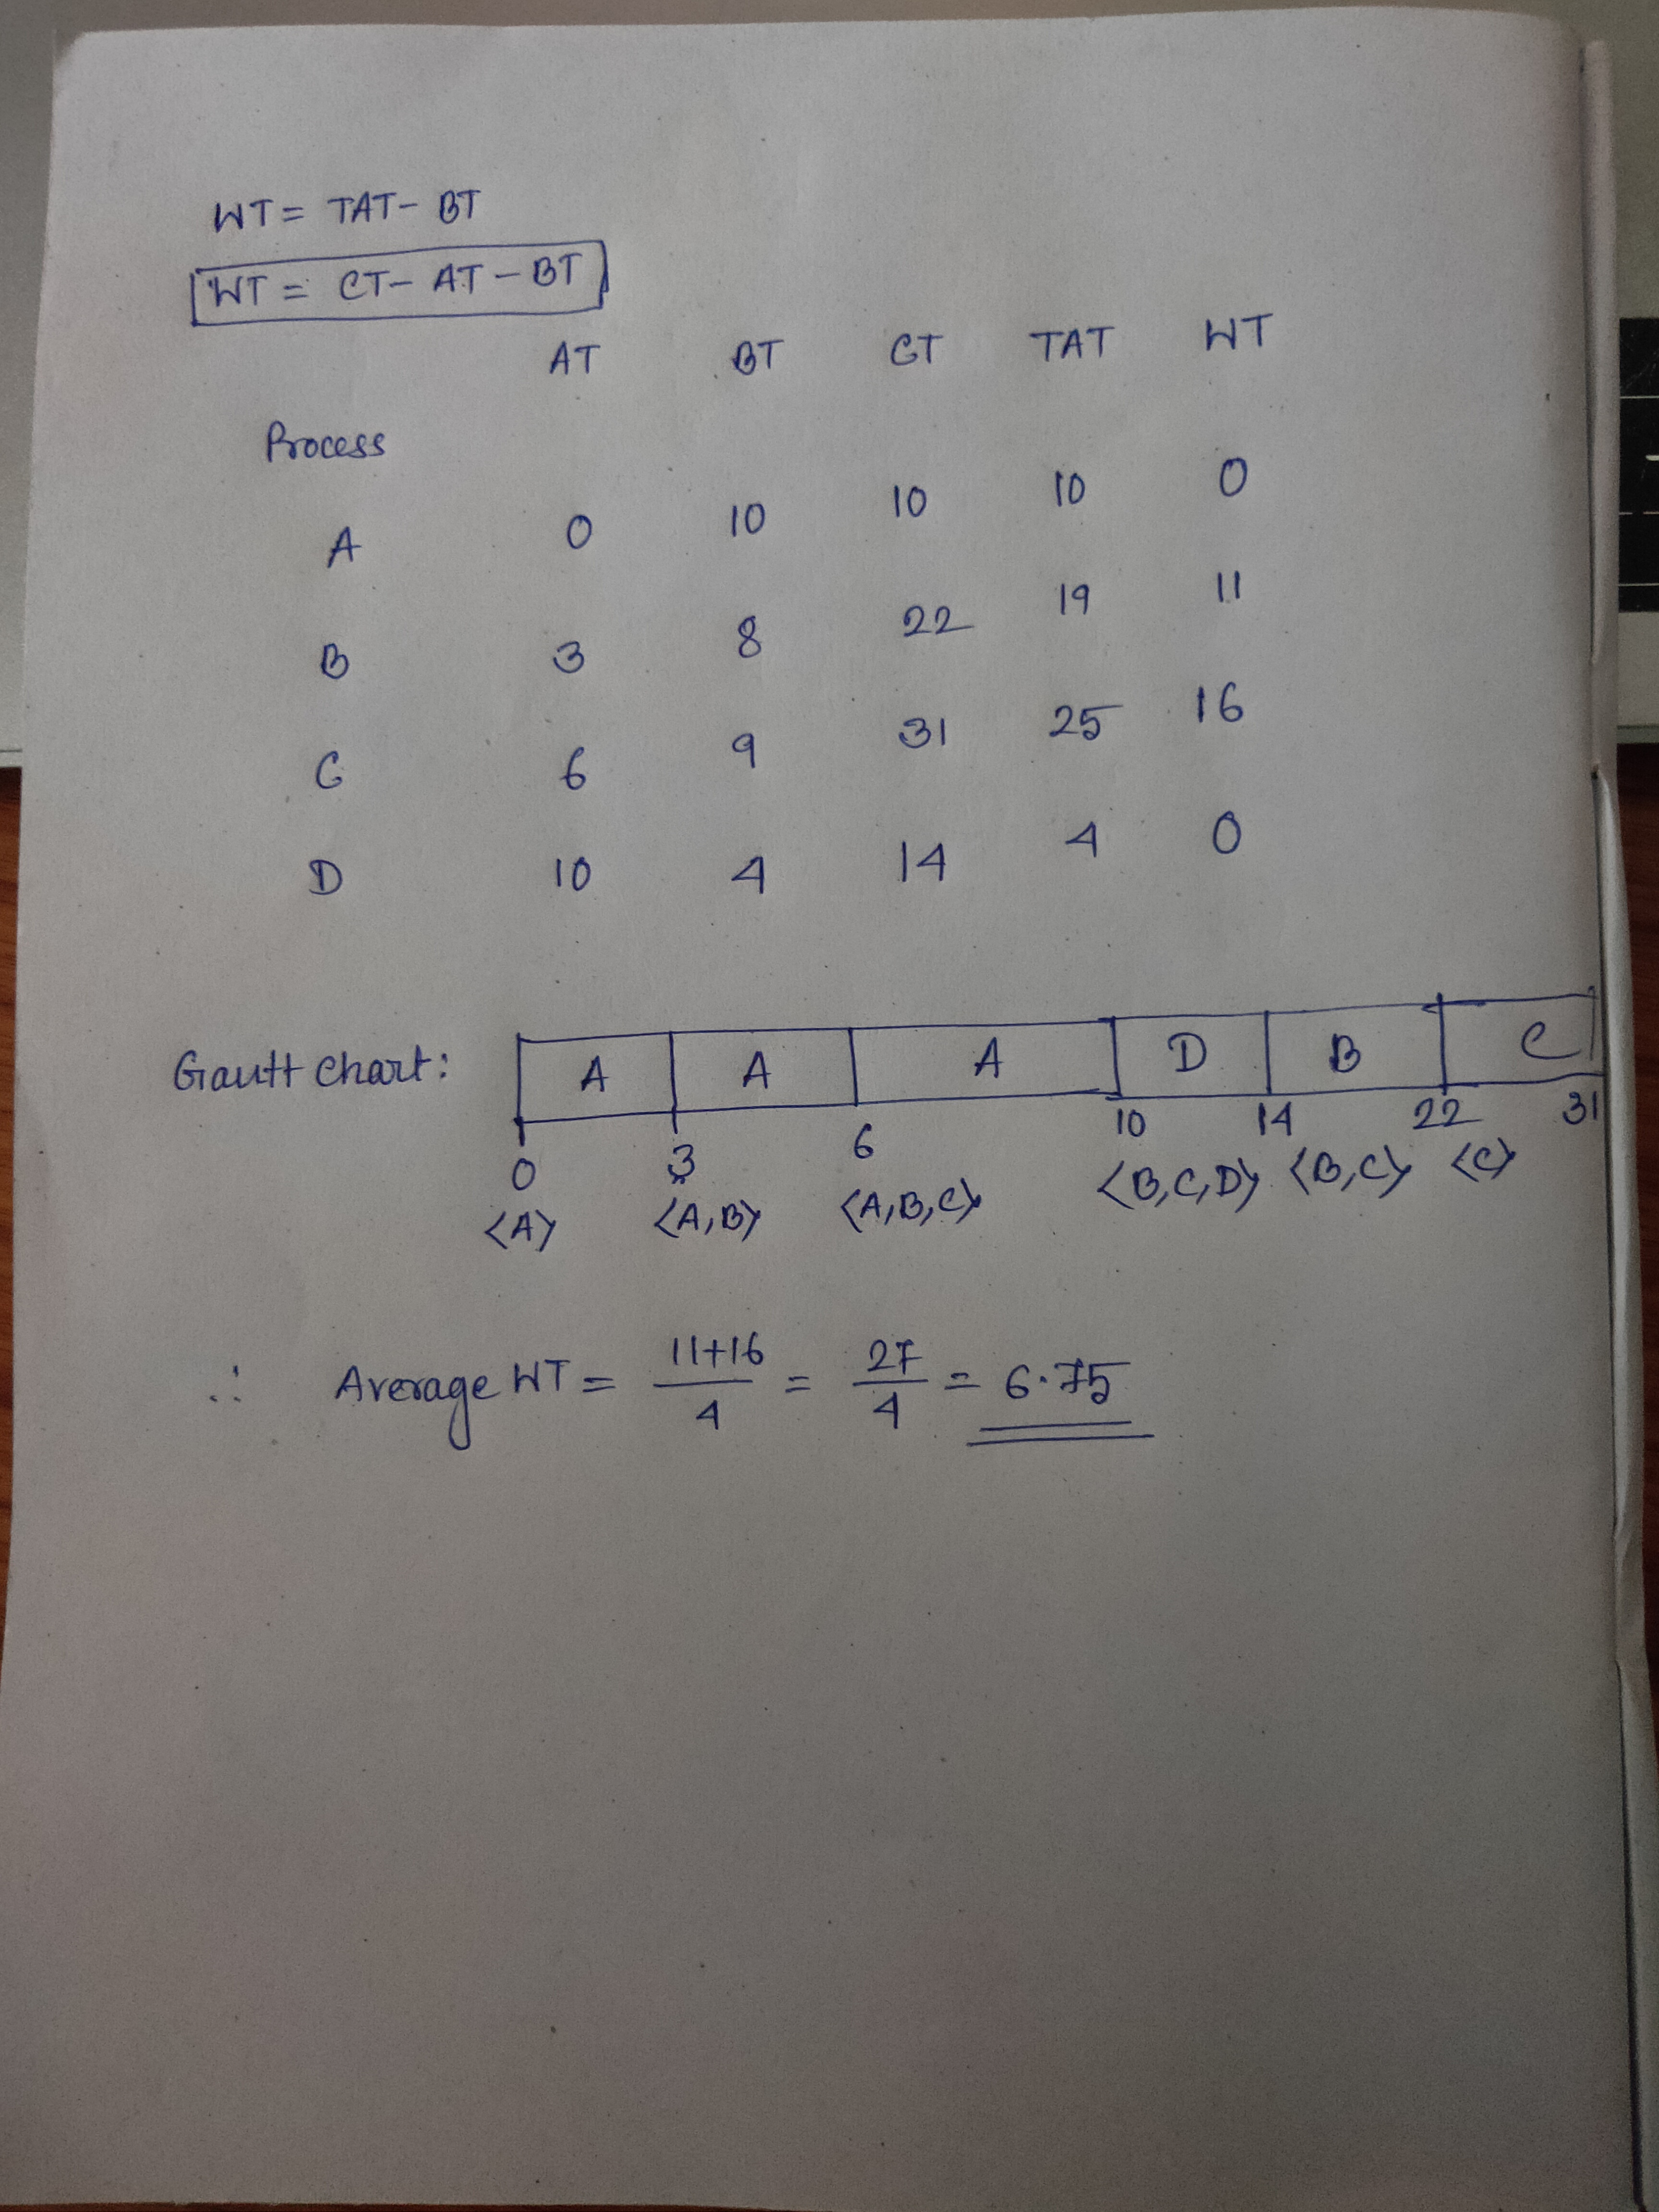 WT = TAT - BT
WT = CT - AT - BT
AT BT CT TAT WT
Process
A 0 10 10 10 0
B 3 8 22 19 11
C 6 9 31 25 16
D 10 4 14 4 0
Gantt Chart: A A A D B C
0 3 6 10 14 22 31
<A> <A,B> <A,B,C> <B,C,D> <B,C> <C>
∴ Average WT = 11+16/4 = 27/4 = 6.75